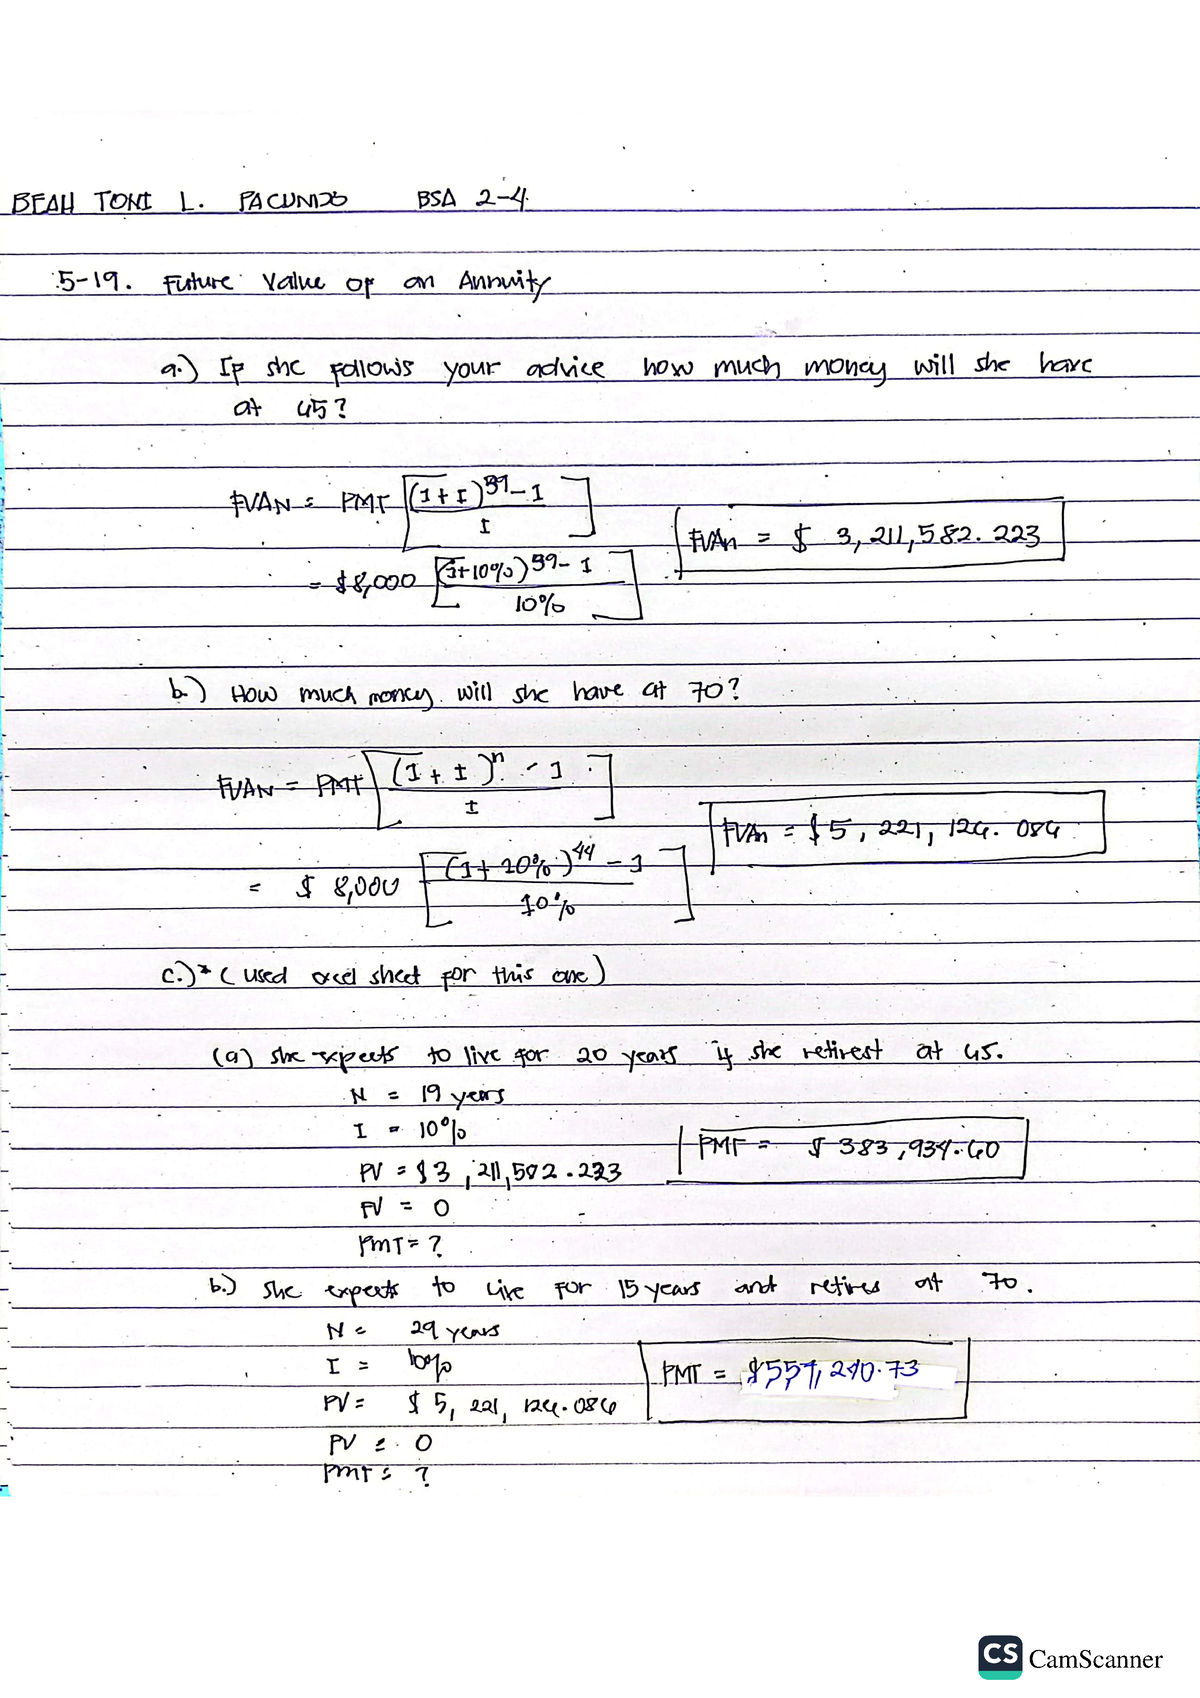 BEAH TONI L. FACUNDO BSA 2-4
5-19. Future Value of an Annuity
a.) If she follows your advice how much money will she have
at 65?
FVAN = PMT [(1+I)^39 - 1
I]
= $8,000 [(1+10%)^39 - 1
10%]
FVAn = $ 3,211,582.223
b.) How much money will she have at 70?
FVAN = PMT [(1 + I)^n - 1
I]
= $ 8,000 [(1+10%)^44 - 1
10%]
FVAn = $5,221,126.086
c.)* (used excel sheet for this one)
(a) she expects to live for 20 years if she retirest at 65.
N = 19 years
I = 10%
PV = $3,211,582.223
FV = 0
PMT = ?
PMT = $ 383,934.60
b.) She expects to live for 15 years and retires at 70.
N = 29 years
I = 10%
PV = $ 5,221,126.086
PV = 0
PMT = ?
PMT = $557,240.73
CS CamScanner